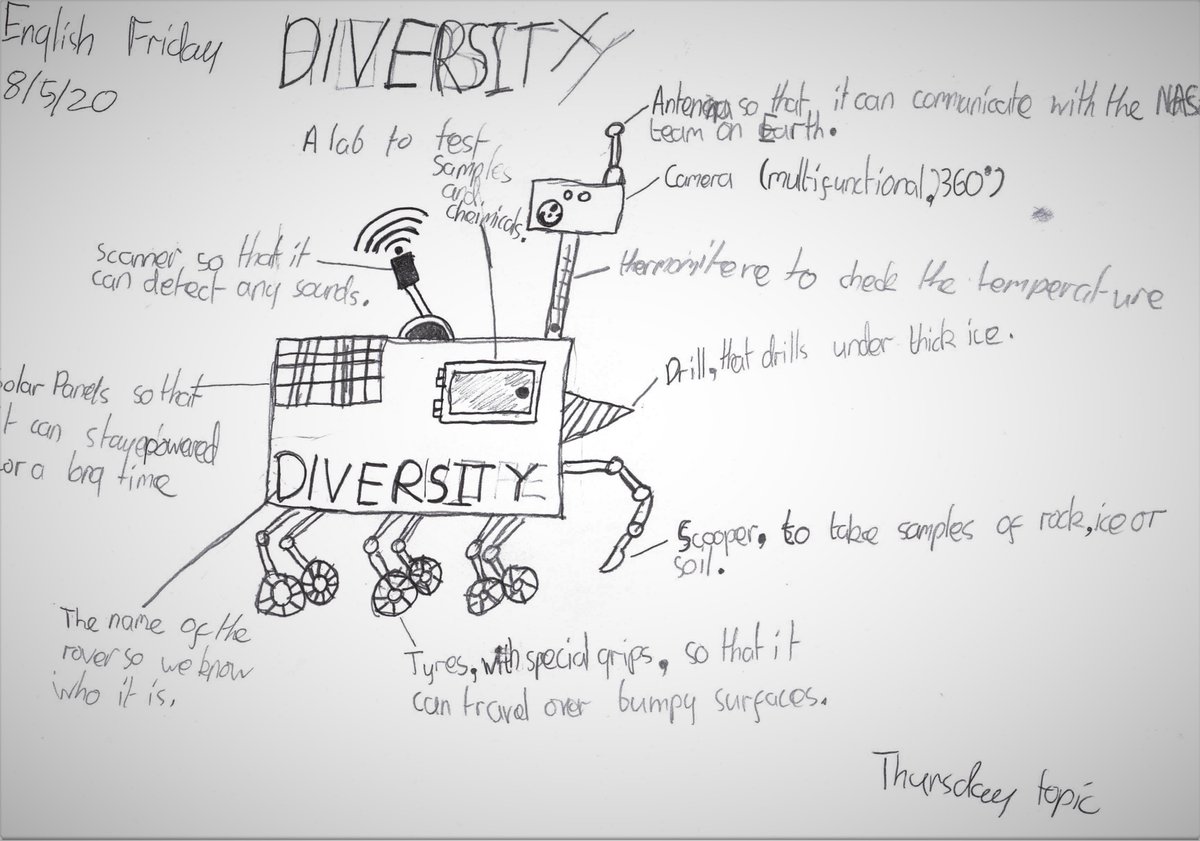 English Friday
8/5/20
DIVERSITY
Antenna so that, it can communicate with the NAS
team on Earth.
A lab to test
samples
and
cheimicals.
Camera (multifunctional,360°)
scanner so that it
can detect any sounds.
thermomitere to check the temperature
Drill, that drills under thick ice.
olar Panels so that
t can stay powered
or a long time
DIVERSITY
Scooper, to take samples of rock, ice or
soil.
The name of the
rover so we know
who it is.
Tyres, with special grips, so that it
can travel over bumpy surfaces.
Thursday topic